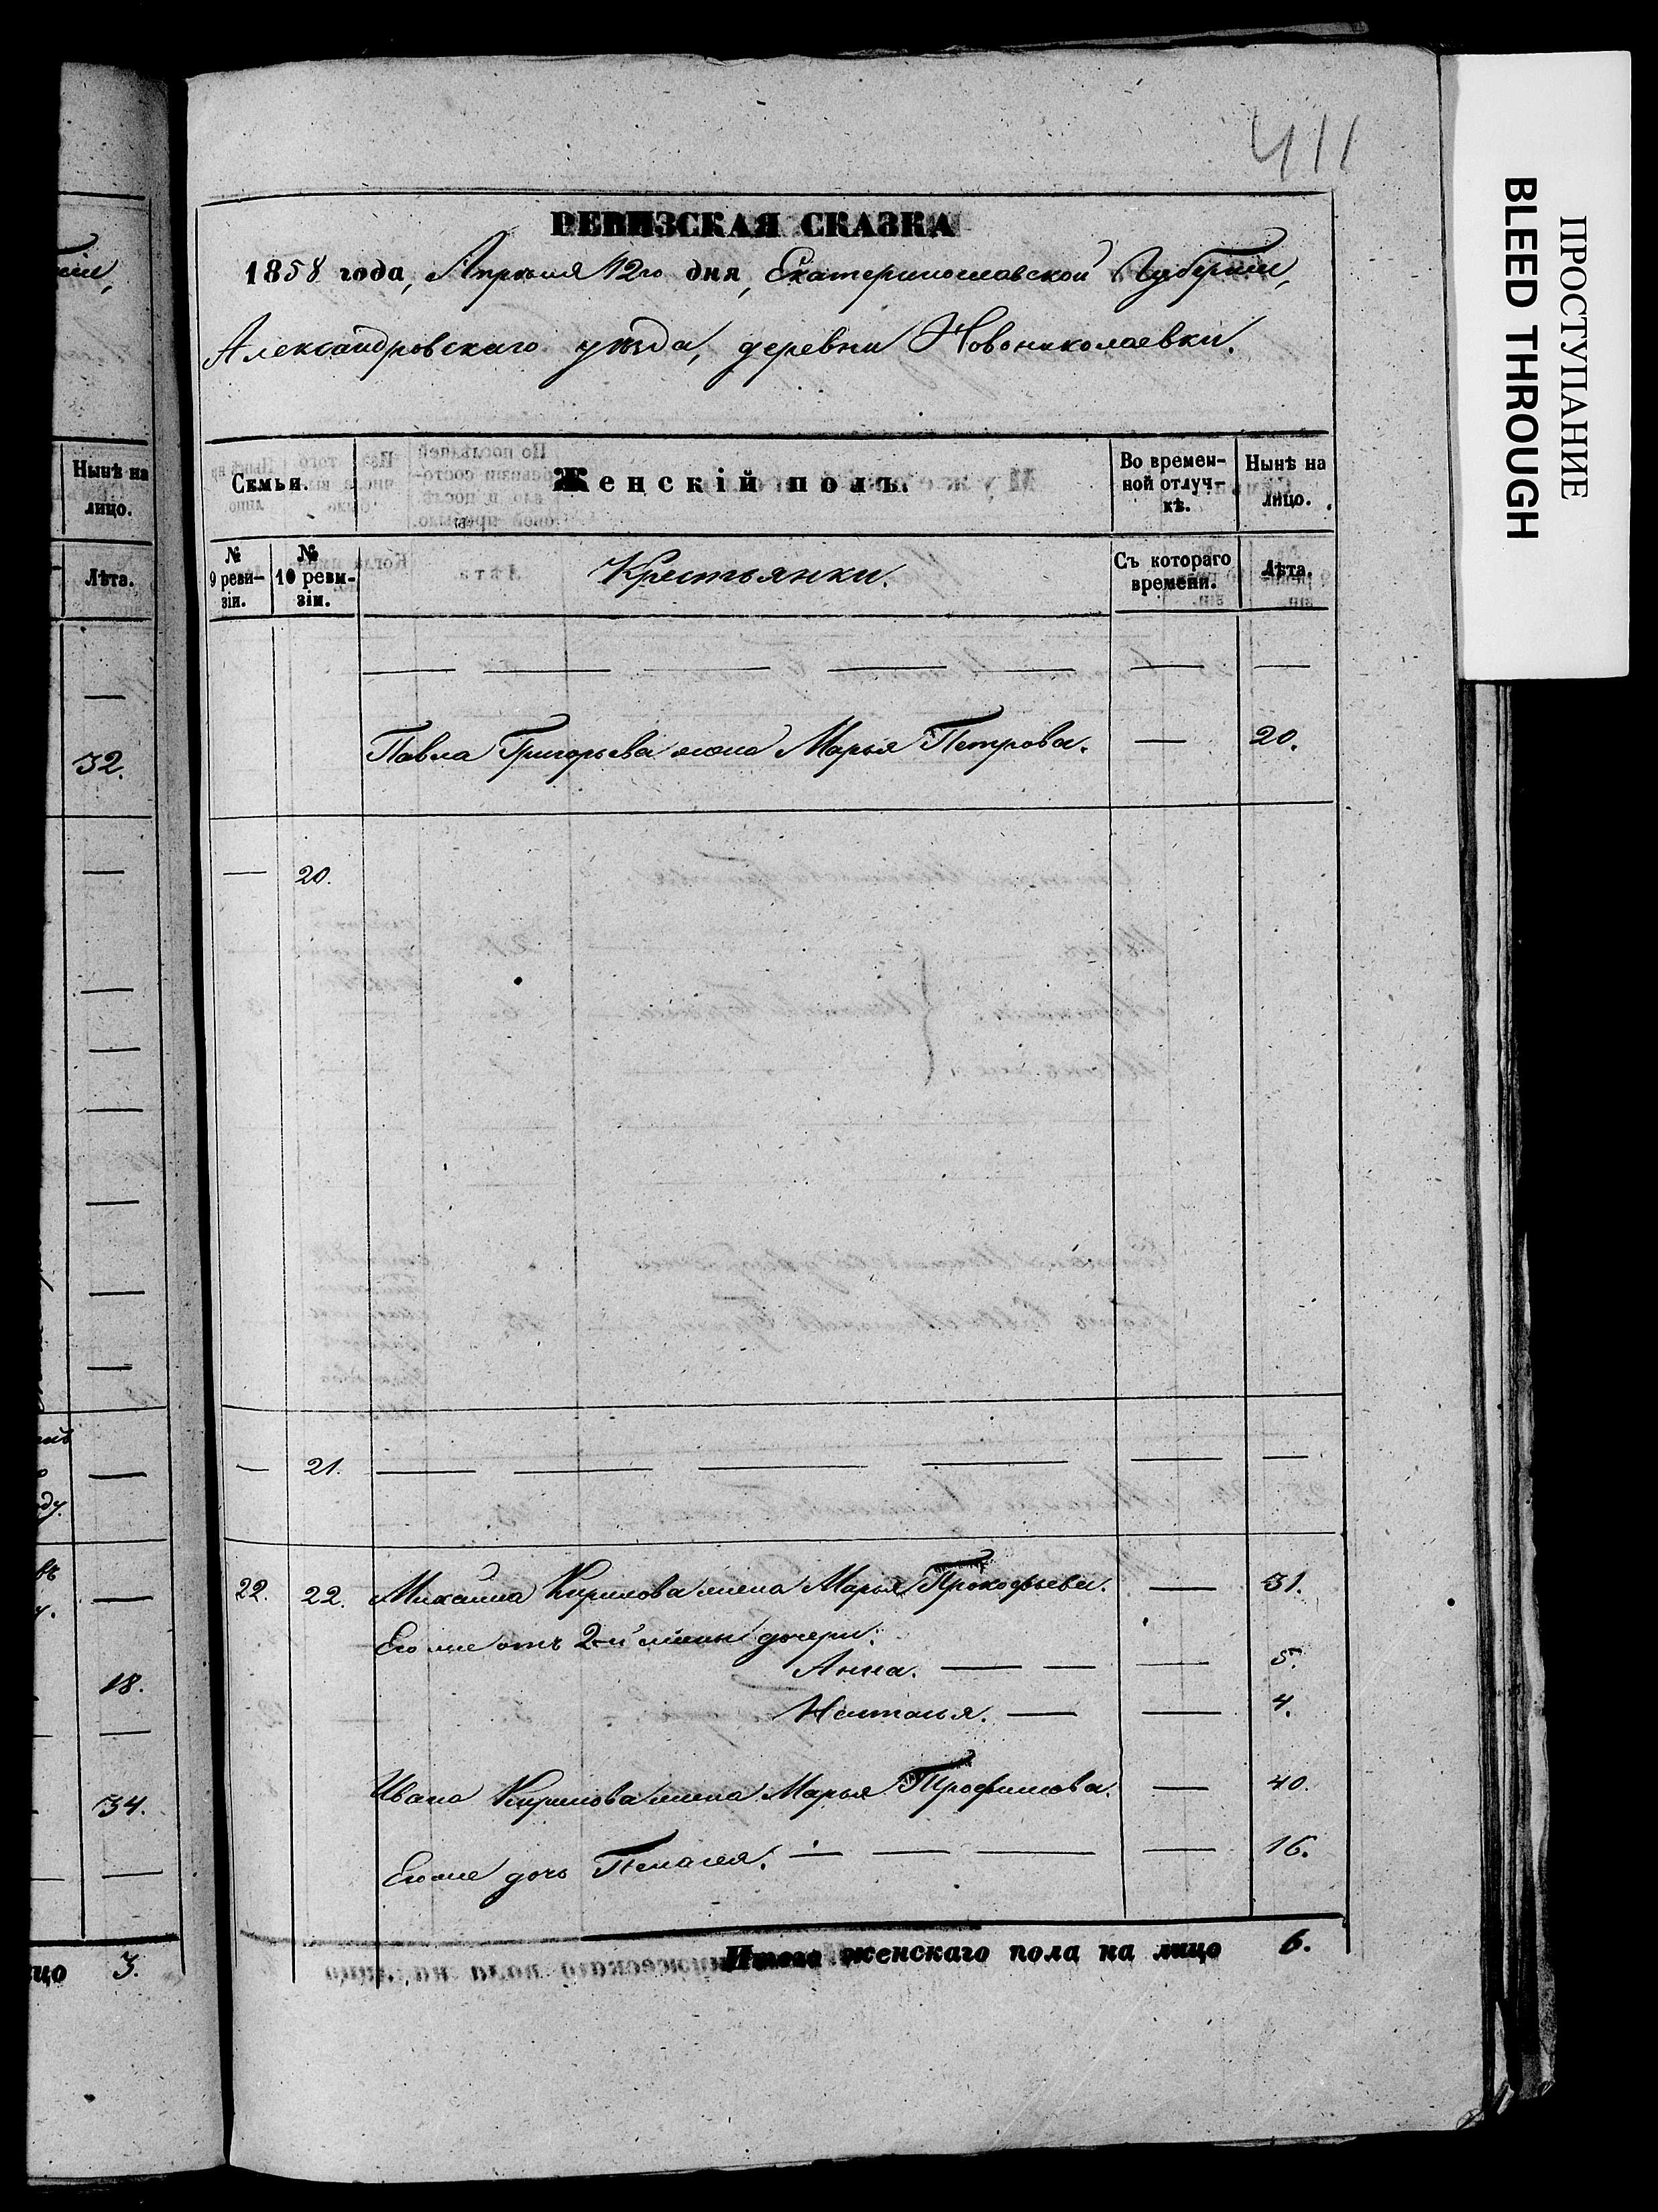 411
РЕВИЗСКАЯ СКАЗКА
1858 года, Апреля 12го дня, Екатеринославской Губернии,
Александровскаго уѣзда, деревни Новониколаевки.
Семьи. Женскій полъ. Во времен- Нынѣ на
ной отлуч- лицо.
кѣ.
№ № Крестьянки. Съ котораго Лѣта.
9 реви- 10 реви- времени.
зіи. зіи.
— — — — — — —
Павла Григорьева жена Марья Петрова. — 20.
— 20.
— 21. — — — — — —
22. 22. Михайла Кирилова жена Марья Прокофьева. — 31.
Его же отъ 2-й жены дочери:
Анна. — — — 5.
Наталья. — — 4.
Ивана Кирилова жена Марья Трофимова. — 40.
Его же дочь Пелагея. — — — — 16.
Итого женскаго пола на лицо 6.
Нынѣ на
лицо.
Лѣта.
—
32.
—
—
—
—
—
—
—
—
—
18.
—
34.
—
3.
ПРОСТУПАНИЕ
BLEED THROUGH